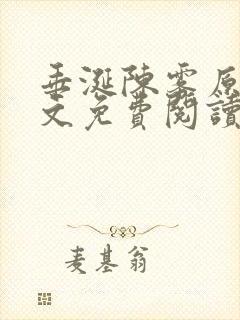 垂涎陳雾原
文免費閱讀
麦基翁